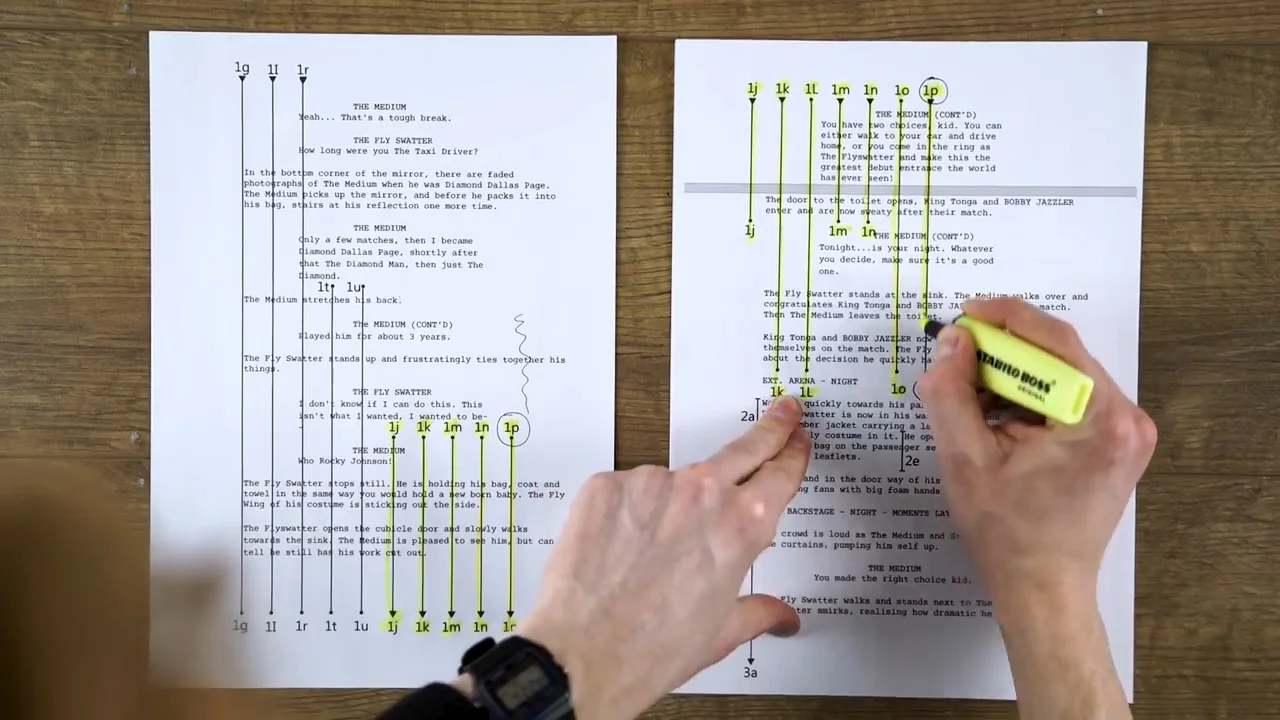 1g 1I 1r
THE MEDIUM
Yeah... That's a tough break.
THE FLY SWATTER
How long were you The Taxi Driver?
In the bottom corner of the mirror, there are faded
photographs of The Medium when he was Diamond Dallas Page.
The Medium picks up the mirror, and before he packs it into
his bag, stairs at his reflection one more time.
THE MEDIUM
Only a few matches, then I became
Diamond Dallas Page, shortly after
that The Diamond Man, then just The
Diamond.
1t 1u
The Medium stretches his back.
THE MEDIUM (CONT'D)
Played him for about 3 years.
The Fly Swatter stands up and frustratingly ties together his
things.
THE FLY SWATTER
I don't know if I can do this. This
isn't what I wanted, I wanted to be-
-
1j 1k 1m 1n 1p
THE MEDIUM
Who Rocky Johnson!
The Fly Swatter stops still. He is holding his bag, coat and
towel in the same way you would hold a new born baby. The Fly
Wing of his costume is sticking out the side.
The Flyswatter opens the cubicle door and slowly walks
towards the sink. The Medium is pleased to see him, but can
tell he still has his work cut out.
1g 1I 1r 1t 1u 1j 1k 1m 1n
1j 1k 1L 1m 1n 1o 1p
THE MEDIUM (CONT'D)
You have two choices, kid. You can
either walk to your car and drive
home, or you come in the ring as
The Flyswatter and make this the
greatest debut entrance the world
has ever seen!
The door to the toilet opens, King Tonga and BOBBY JAZZLER
enter and are now sweaty after their match.
1j 1m 1n
THE MEDIUM (CONT'D)
Tonight...is your night. Whatever
you decide, make sure it's a good
one.
The Fly Swatter stands at the sink. The Medium walks over and
congratulates King Tonga and BOBBY match.
Then The Medium leaves the toilet.
King Tonga and BOBBY JAZZLER
themselves on the match. The
about the decision he quickly
EXT. ARENA - NIGHT
1k 1L 1o
quickly towards his
2a is now in his
jacket carrying a
costume in it. He
bag on the passenger
leaflets. 2e
in the door way of his
fans with big foam hands
BACKSTAGE - NIGHT - MOMENTS
crowd is loud as The Medium and
curtains, pumping him self up.
THE MEDIUM
You made the right choice kid.
Fly Swatter walks and stands next to The
smirks, realising how dramatic he
3a
STABILO BOSS
ORIGINAL